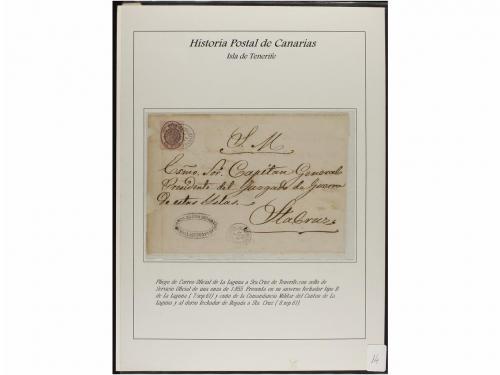 Historia Postal de Canarias
Isla de Tenerife
S. M.
Exmo. Sor. Capitan General
Presidente del Juzgado de Guerra
de estas Yslas
Sta Cruz
Pliego de Correo Oficial de La Laguna a Sta.Cruz de Tenerife con sello de
Servicio Oficial de una onza de 1.855. Presenta en su anverso fechador tipo II
de La Laguna ( 7 sep 61) y cuño de la Comandancia Militar del Canton de La
Laguna y al dorso fechador de llegada a Sta. Cruz ( 8 sep 61)
14